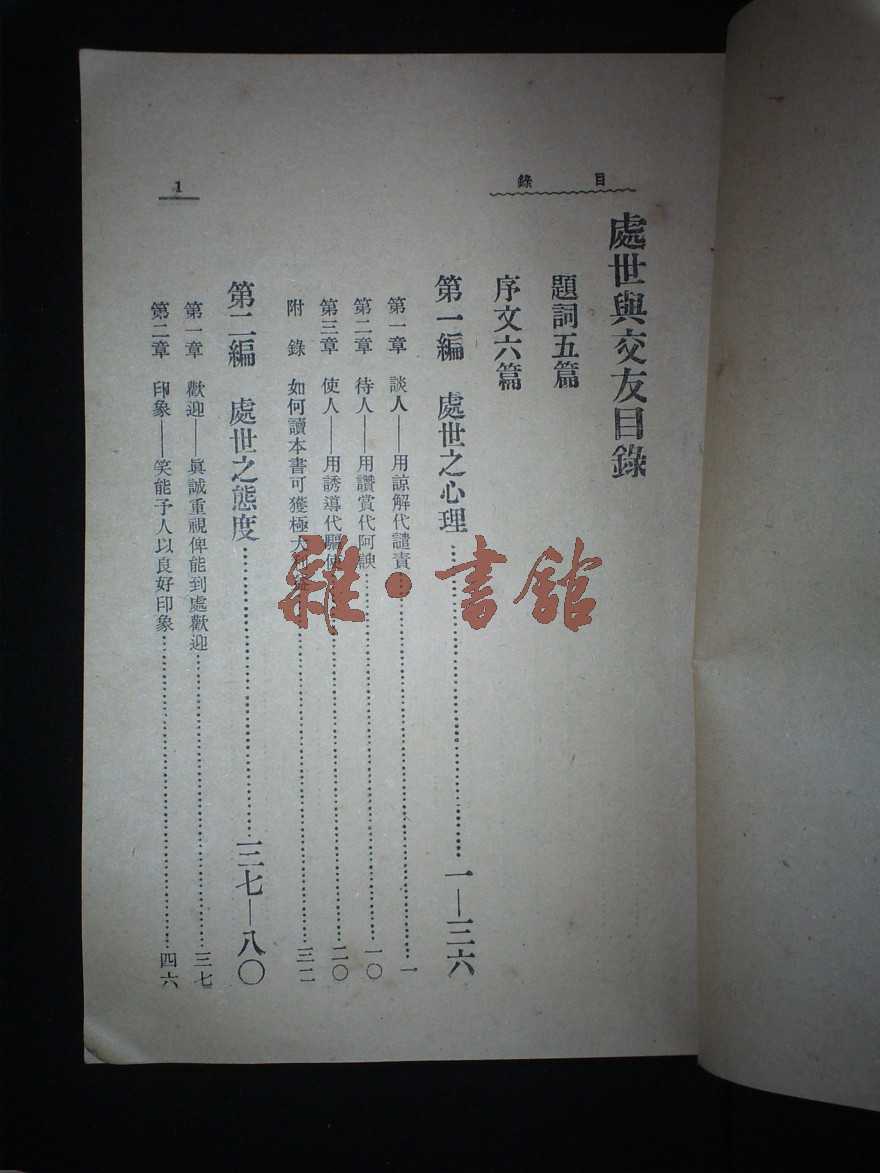 目錄
1
處世與交友目錄
題詞五篇
序文六篇
第一編 處世之心理……一—三六
第一章 談人——用諒解代譴責……一
第二章 待人——用讚賞代阿諛……一〇
第三章 使人——用誘導代驅使……二〇
附錄 如何讀本書可獲極大……三二
第二編 處世之態度……三七—八〇
第一章 歡迎——眞誠重視俾能到處歡迎……三七
第二章 印象——笑能予人以良好印象……四六
雜·書館